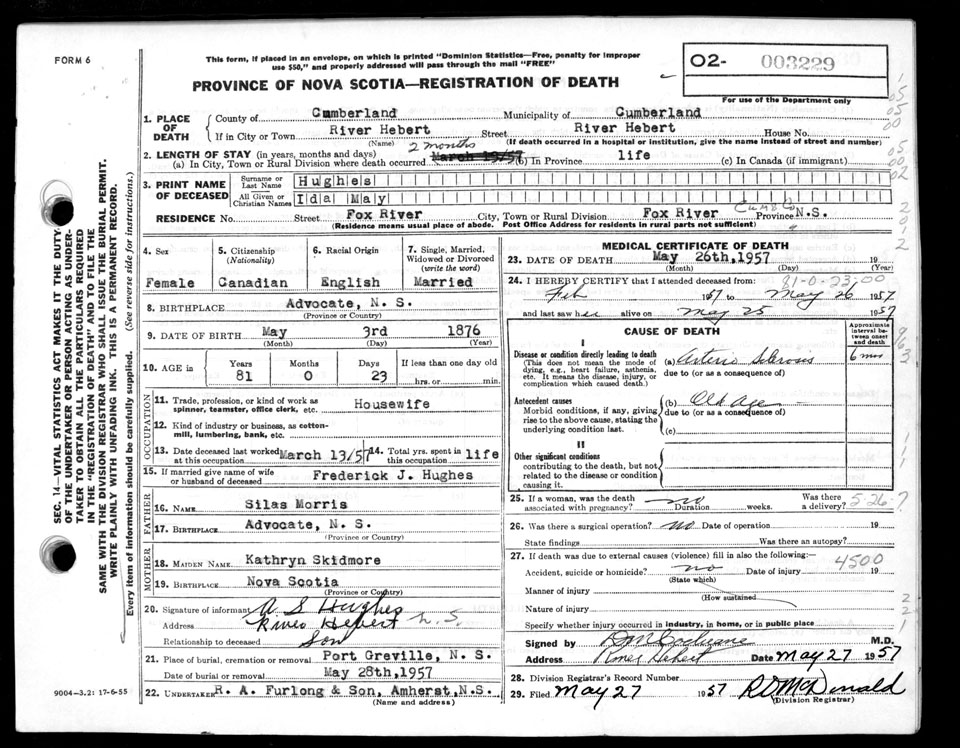 FORM 6
This form, if placed in an envelope, on which is printed "Dominion Statistics—Free, penalty for improper
use $50," and properly addressed will pass through the mail "FREE"
PROVINCE OF NOVA SCOTIA—REGISTRATION OF DEATH
02- 003229
For use of the Department only
1. PLACE OF DEATH County of Cumberland Municipality of Cumberland
If in City or Town River Hebert Street River Hebert House No.
(Name) (If death occurred in a hospital or institution, give the name instead of street and number)
2 months
2. LENGTH OF STAY (in years, months and days)
(a) In City, Town or Rural Division where death occurred March 13/57 (b) In Province life (c) In Canada (if immigrant)
3. PRINT NAME OF DECEASED Surname or Last Name Hughes
All Given or Christian Names Ida May
Cumb Co
RESIDENCE No. Street Fox River City, Town or Rural Division Fox River Province N.S.
(Residence means usual place of abode. Post Office Address for residents in rural parts not sufficient)
4. Sex 5. Citizenship (Nationality) 6. Racial Origin 7. Single, Married, Widowed or Divorced (write the word)
Female Canadian English Married
8. BIRTHPLACE Advocate, N. S.
(Province or Country)
9. DATE OF BIRTH May 3rd 1876
(Month) (Day) (Year)
10. AGE in Years Months Days If less than one day old
81 0 23 hrs. or min.
OCCUPATION
11. Trade, profession, or kind of work as spinner, teamster, office clerk, etc. Housewife
12. Kind of industry or business, as cotton-mill, lumbering, bank, etc.
13. Date deceased last worked at this occupation March 13/57 14. Total yrs. spent in this occupation life
15. If married give name of wife or husband of deceased Frederick J. Hughes
FATHER
16. NAME Silas Morris
17. BIRTHPLACE Advocate, N. S.
(Province or Country)
MOTHER
18. MAIDEN NAME Kathryn Skidmore
19. BIRTHPLACE Nova Scotia
(Province or Country)
20. Signature of informant A S Hughes
Address River Hebert N.S.
Relationship to deceased Son
21. Place of burial, cremation or removal Port Greville, N. S.
Date of burial or removal May 28th,1957
22. UNDERTAKER R. A. Furlong & Son, Amherst,N.S.
(Name and address)
9004-3.2: 17-6-55
MEDICAL CERTIFICATE OF DEATH
23. DATE OF DEATH May 26th,1957 19
(Month) (Day) (Year)
24. I HEREBY CERTIFY that I attended deceased from: 81-0-23-00
Feb 1957 to May 26 1957
and last saw her alive on May 25 1957
CAUSE OF DEATH
Approximate interval between onset and death
I
Disease or condition directly leading to death (a) Arterio Sclerosis 6 mos
(This does not mean the mode of dying, e.g., heart failure, asthenia, etc. It means the disease, injury, or complication which caused death.)
due to (or as a consequence of)
Antecedent causes (b) Old Age
Morbid conditions, if any, giving rise to the above cause, stating the underlying condition last.
due to (or as a consequence of)
(c)
II
Other significant conditions
contributing to the death, but not related to the disease or condition causing it.
25. If a woman, was the death associated with pregnancy? no Duration weeks. Was there a delivery? 5-26-7
26. Was there a surgical operation? no Date of operation 19
State findings Was there an autopsy?
27. If death was due to external causes (violence) fill in also the following:— 4500
Accident, suicide or homicide? no Date of injury 19
(State which)
Manner of injury
(How sustained)
Nature of injury
Specify whether injury occurred in industry, in home, or in public place
Signed by Cochrane M.D.
Address River Hebert Date May 27 1957
28. Division Registrar's Record Number
29. Filed May 27 1957 McDonald
(Division Registrar)
SEC. 14—VITAL STATISTICS ACT MAKES IT THE DUTY
OF THE UNDERTAKER OR PERSON ACTING AS UNDER-
TAKER TO OBTAIN ALL THE PARTICULARS REQUIRED
IN THE "REGISTRATION OF DEATH" AND TO FILE THE
SAME WITH THE DIVISION REGISTRAR WHO SHALL ISSUE THE BURIAL PERMIT.
WRITE PLAINLY WITH UNFADING INK. THIS IS A PERMANENT RECORD.
Every item of information should be carefully supplied. (See reverse side for instructions.)